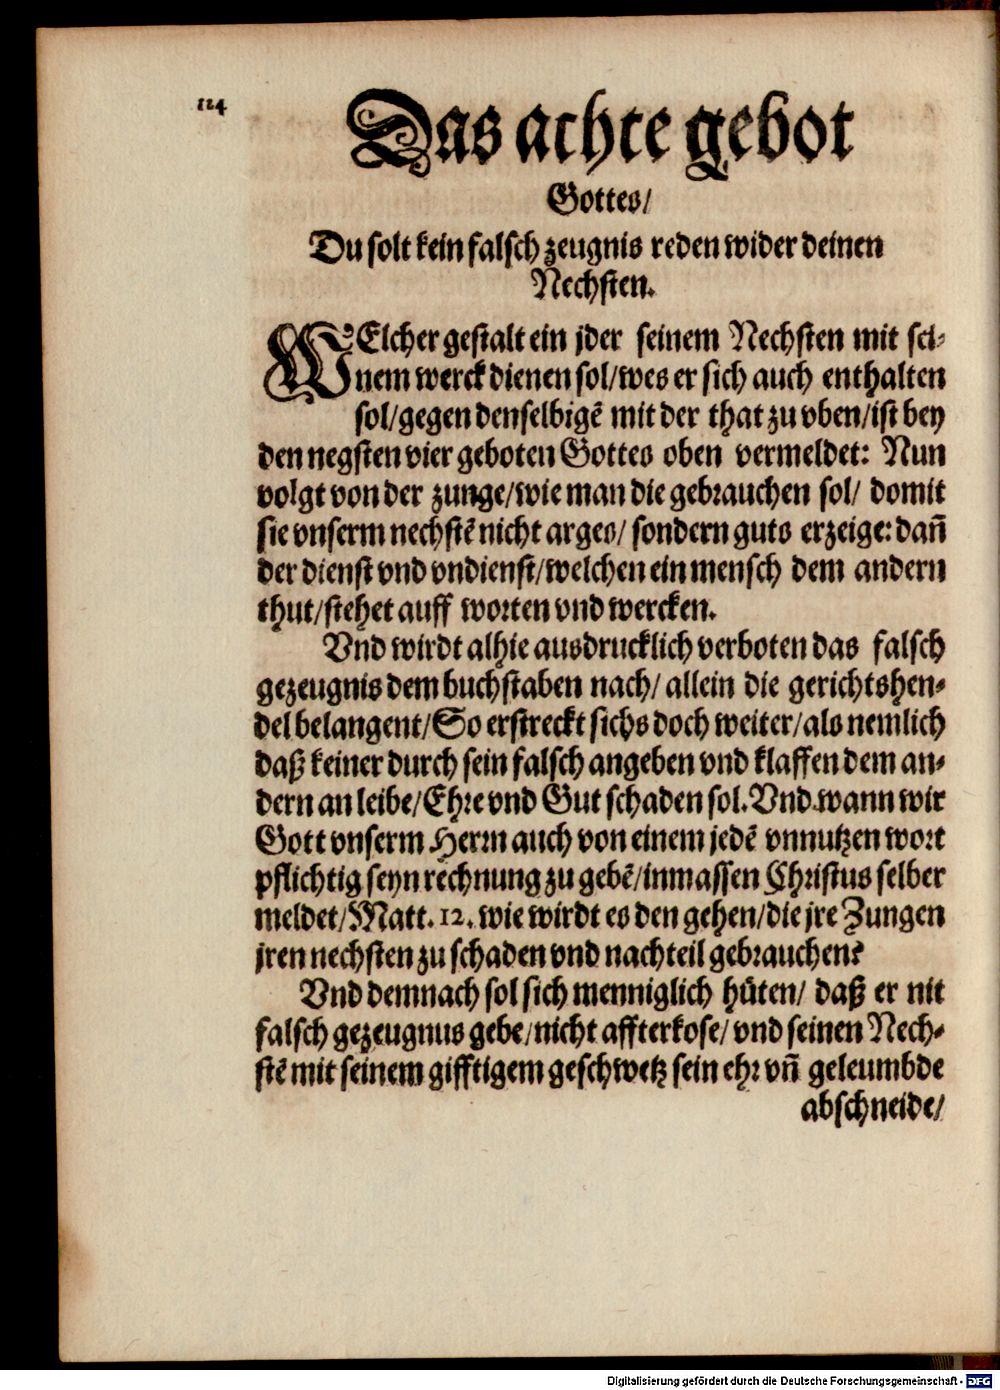 124
Das achte gebot
Gottes/
Du solt kein falsch zeugnis reden wider deinen
Nechsten.
WElcher gestalt ein jder seinem Nechsten mit sei-
nem werck dienen sol/wes er sich auch enthalten
sol/gegen denselbigẽ mit der that zu vben/ist bey
den negsten vier geboten Gottes oben vermeldet: Nun
volgt von der zunge/wie man die gebrauchen sol/ domit
sie vnserm nechstẽ nicht arges/ sondern guts erzeige: dañ
der dienst vnd vndienst/welchen ein mensch dem andern
thut/stehet auff worten vnd wercken.
Vnd wirdt alhie ausdrucklich verboten das falsch
gezeugnis dem buchstaben nach/ allein die gerichtshen-
del belangent/So erstreckt sichs doch weiter/als nemlich
daß keiner durch sein falsch angeben vnd klaffen dem an-
dern an leibe/Ehre vnd Gut schaden sol. Vnd wann wir
Gott vnserm Herrn auch von einem jedẽ vnnutzen wort
pflichtig seyn rechnung zu gebẽ/inmassen Christus selber
meldet/Matt. 12. wie wirdt es den gehen/die jre Zungen
jren nechsten zu schaden vnd nachteil gebrauchen?
Vnd demnach sol sich menniglich hüten/ daß er nit
falsch gezeugnus gebe/nicht affterkose/ vnd seinen Nech-
stẽ mit seinem gifftigem geschwetz sein ehr vñ geleumbde
abschneide/
Digitalisierung gefördert durch die Deutsche Forschungsgemeinschaft - DFG